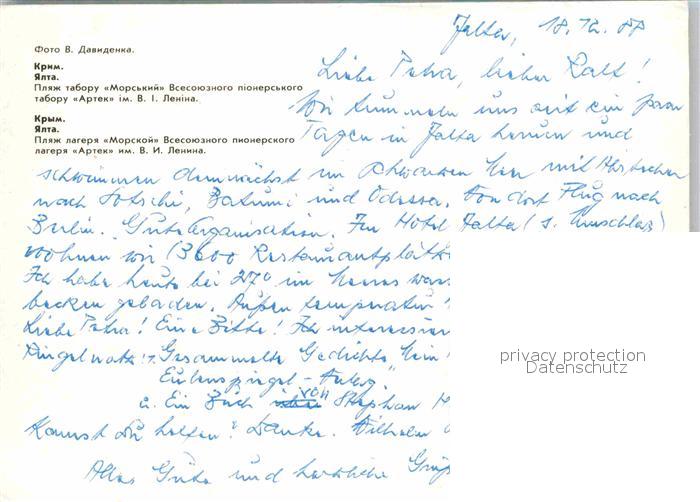 Фото В. Давиденка.
Крим.
Ялта.
Пляж табору «Морський» Всесоюзного піонерського
табору «Артек» ім. В. І. Леніна.
Крым.
Ялта.
Пляж лагеря «Морской» Всесоюзного пионерского
лагеря «Артек» им. В. И. Ленина.
Jalta, 18.12.88
Liebe Petra, lieber Ralf!
Wir tummeln uns seit ein paar
Tagen in Jalta herum und
schwimmen demnächst im Schwarzen Meer mit Abstecher
nach Sotschi, Batumi und Odessa. Von dort Flug nach
Berlin. Gute Organisation. Im Hotel Jalta (s. Umschlag)
wohnen wir (3600 Restaurantplätz
Ich habe heute bei 27° im Meeres was
becken gebaden. Außentemperatur
Liebe Petra! Eine Bitte! Ich interessier
Ringelnatz: Gesammelte Gedichte
Eulenspiegel-
2. Ein Buch von Stephan
Kannst Du helfen? Danke. Wilhelm
Alles Gute und herzliche Grüß
privacy protection
Datenschutz